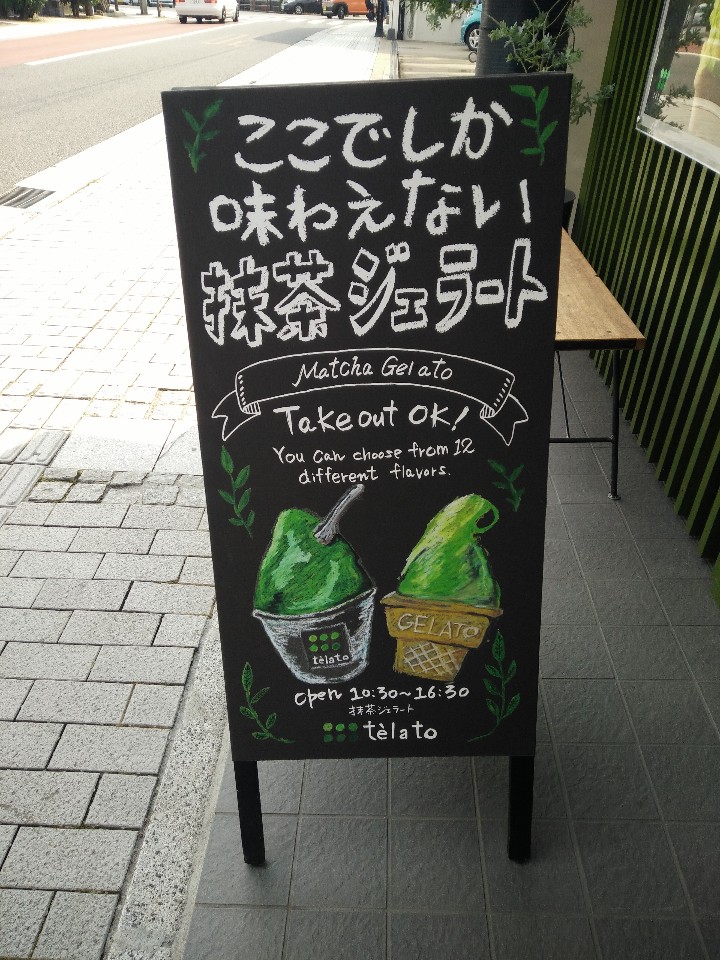 ここでしか
味わえない
抹茶ジェラート
Matcha Gelato
Takeout OK!
You can choose from 12
different flavors.
tèlato
GELATO
open 10:30~16:30
抹茶ジェラート
tèlato